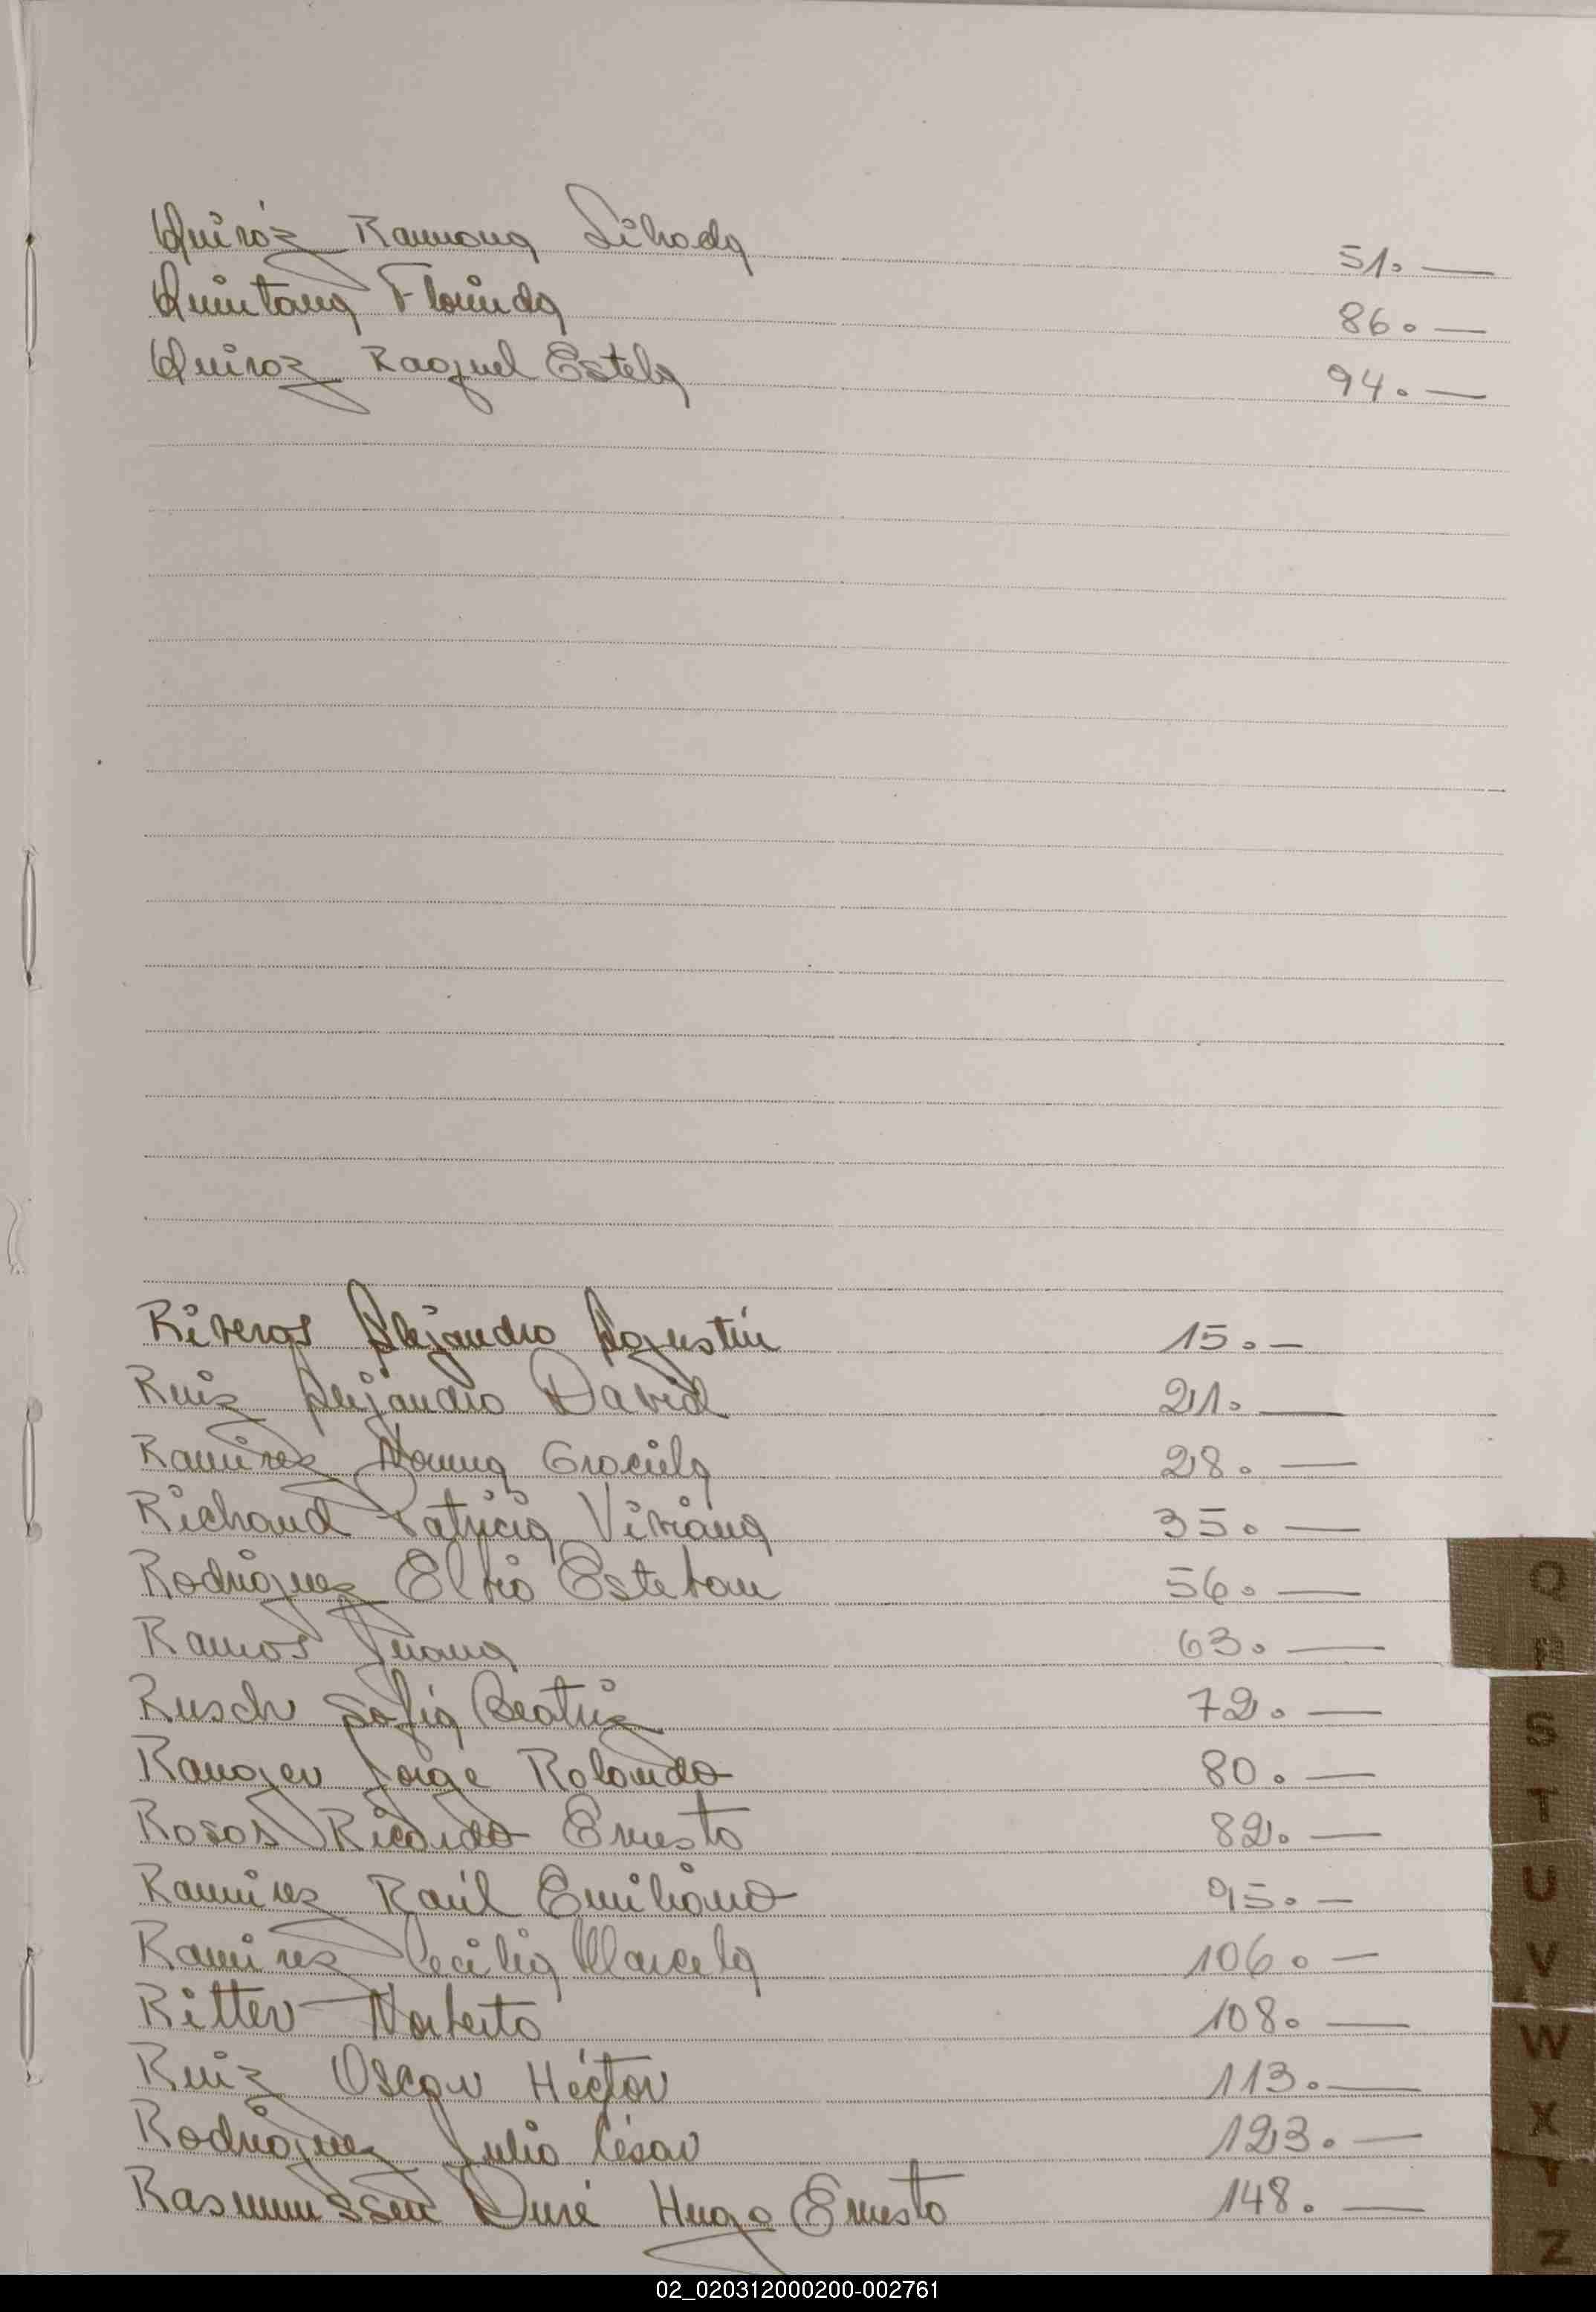 Quiróz Ramona Librada 51.—
Quintana Florinda 86.—
Quiroz Raquel Estela 94.—
Riveros Alejandro Agustín 15.—
Ruiz Alejandro David 21.—
Ramirez Norma Graciela 28.—
Richard Patricia Viviana 35.—
Rodriguez Elvio Esteban 56.—
Ramos Juana 63.—
Rusch Sofia Beatriz 72.—
Jorge Rolando 80.—
Rosas Ricardo Ernesto 82.—
Ramirez Raúl Emiliano 95.—
Ramirez Cecilia Marcela 106.—
Ritter Norberto 108.—
Ruiz Oscar Héctor 113.—
Rodriguez Julio César 123.—
Rasmussen Duré Hugo Ernesto 148.—
Q
R
S
T
U
V
W
X
Y
Z
02_020312000200-002761